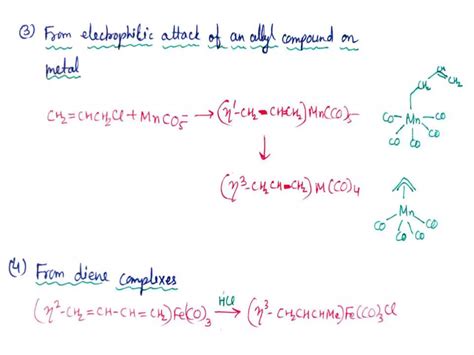 (3) From electrophilic attack of an allyl compound on
metal
CH₂=CHCH₂Cl + MnCO₅⁻ → (η¹-CH₂-CH=CH₂)Mn(CO)₅
↓
(η³-CH₂CH-CH₂)M(CO)₄
CH
CH₂
CH₂
CO Mn CO
CO CO CO
Mn
CO CO CO CO
(4) From diene complexes
(η²-CH₂=CH-CH=CH₂)Fe(CO)₃ HCl → (η³-CH₂CHCHMe)Fe(CO)₃Cl